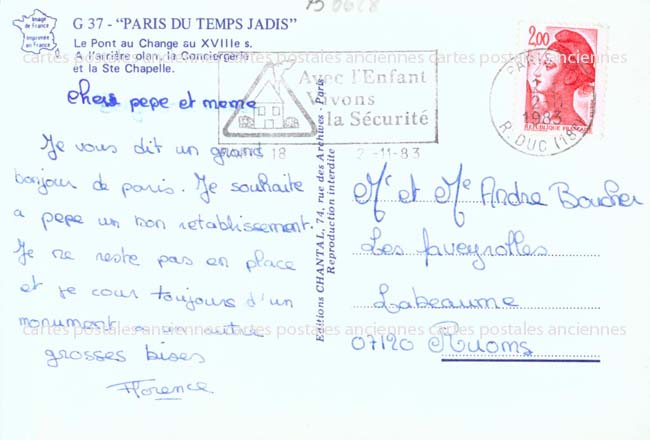 B 0628
Image
de France
Imprimée
en France
G 37 - "PARIS DU TEMPS JADIS"
Le Pont au Change au XVIIIe s.
A l'arrière plan, la Conciergerie
et la Ste Chapelle.
cartes postales anciennes cartes postales anciennes cartes postales anciennes
chers pepe et meme
Je vous dit un grand
bonjour de paris. Je souhaite
a pepe un bon retablissement.
Je ne reste pas en place
et je cour toujours d'un
monument a un autre
grosses bises
Florence
Avec l'Enfant
Vivons
la Sécurité
18 2-11-83
PARIS
2
1983
R. DUC (18
2,00
REPUBLIQUE FRANÇAISE
Editions CHANTAL, 74, rue des Archives - Paris
Reproduction interdite
Mr et Me Andre Boucher
Les faveyrolles
Labeaume
07120 Ruoms
cartes postales anciennes cartes postales anciennes cartes postales anciennes